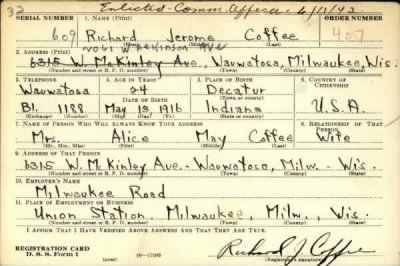 33 Enlisted - Comm. Officer - 6/13/42
SERIAL NUMBER 1. NAME (Print) ORDER NUMBER
609 Richard Jerome Coffee 405
(First) (Middle) (Last)
2. ADDRESS (Print)
6315 W. McKinley Ave., Wauwatosa, Milwaukee, Wis.
(Number and street or R. F. D. number) (Town) (County) (State)
3. TELEPHONE 4. AGE IN YEARS 5. PLACE OF BIRTH 6. COUNTRY OF CITIZENSHIP
Wauwatosa 24 Decatur
DATE OF BIRTH (Town or county)
Bl. 1188 May 13 1916 Indiana U.S.A.
(Exchange) (Number) (Mo.) (Day) (Yr.) (State or country)
7. NAME OF PERSON WHO WILL ALWAYS KNOW YOUR ADDRESS 8. RELATIONSHIP OF THAT PERSON
Mrs. Alice May Coffee Wife
(Mr., Mrs., Miss) (First) (Middle) (Last)
9. ADDRESS OF THAT PERSON
6315 W. McKinley Ave. - Wauwatosa, Milw. - Wis.
(Number and street or R. F. D. number) (Town) (County) (State)
10. EMPLOYER'S NAME
Milwaukee Road
11. PLACE OF EMPLOYMENT OR BUSINESS
Union Station, Milwaukee, Milw., Wis.
(Number and street or R. F. D. number) (Town) (County) (State)
I AFFIRM THAT I HAVE VERIFIED ABOVE ANSWERS AND THAT THEY ARE TRUE.
REGISTRATION CARD
D. S. S. Form 1 16-17105 Richard J. Coffee
(Registrant's signature)